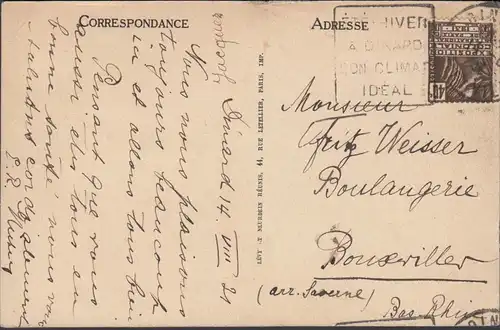 CORRESPONDANCE
Dinard 14 VIII 31
Nous nous plaisons
toujours beaucoup
ici et allons tous bien
Pensant que vous
aussi êtes tous en
bonne santé nous vous
saluons cordialement
LÉVY ET NEURDEIN RÉUNIS, 44, RUE LETELLIER, PARIS, IMP.
ADRESSE
ÉTÉ HIVER
A DINARD
SON CLIMAT
IDÉAL
40
Monsieur
Fritz Weisser
Boulangerie
Bouxwiller
(arr. Saverne)
Bas Rhin